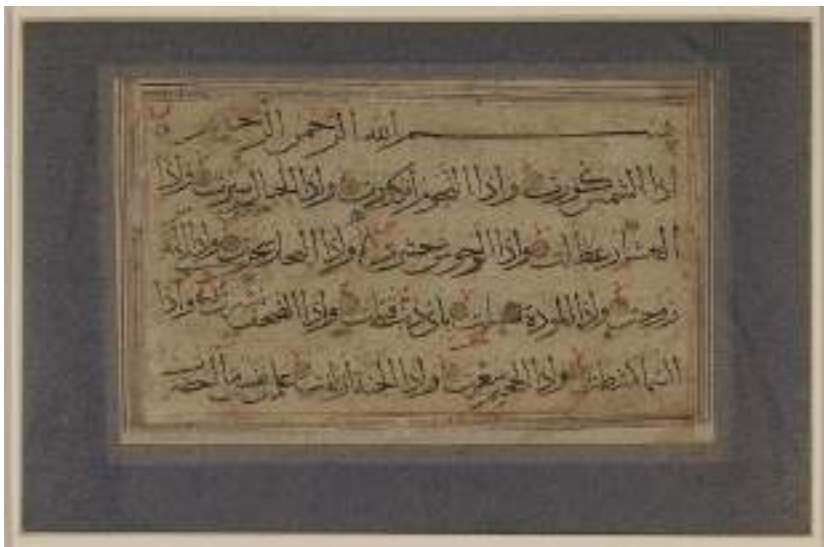 بسم الله الرحمن الرحيم
اذا الشمس كورت واذا النجوم انكدرت واذا الجبال سيرت واذا
العشار عطلت واذا الوحوش حشرت واذا البحار سجرت واذا
زوجت واذا الموودة سئلت باى ذنب قتلت واذا الصحف نشرت واذا
السما كشطت واذا الجحيم سعرت واذا الجنة ازلفت علمت نفس ما احضرت